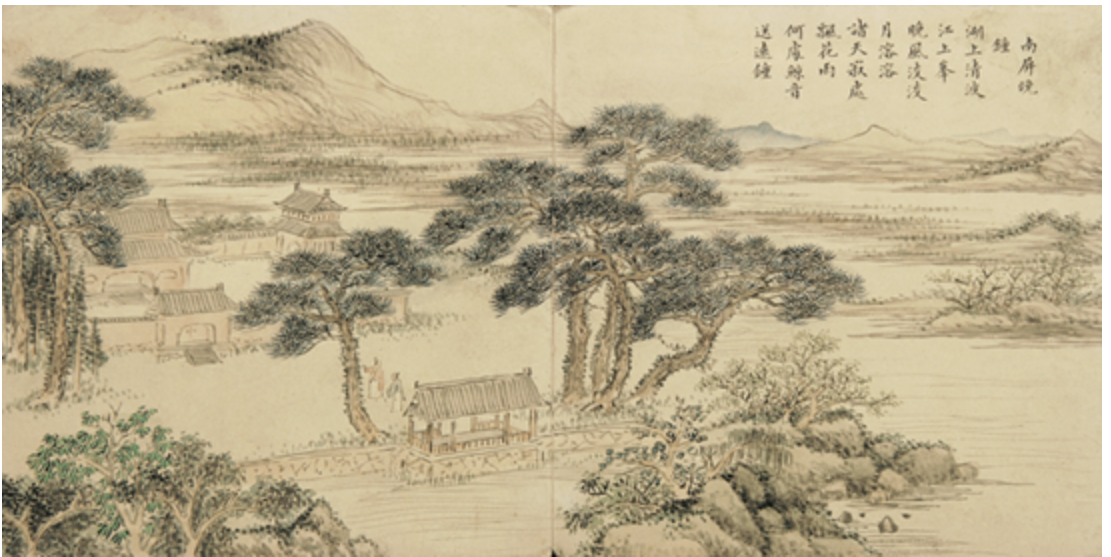 南屏晚
鐘
湖上清波
江上峯
晚風淩淩
月溶溶
諸天寂處
花雨
何處鯨音
送遠鐘